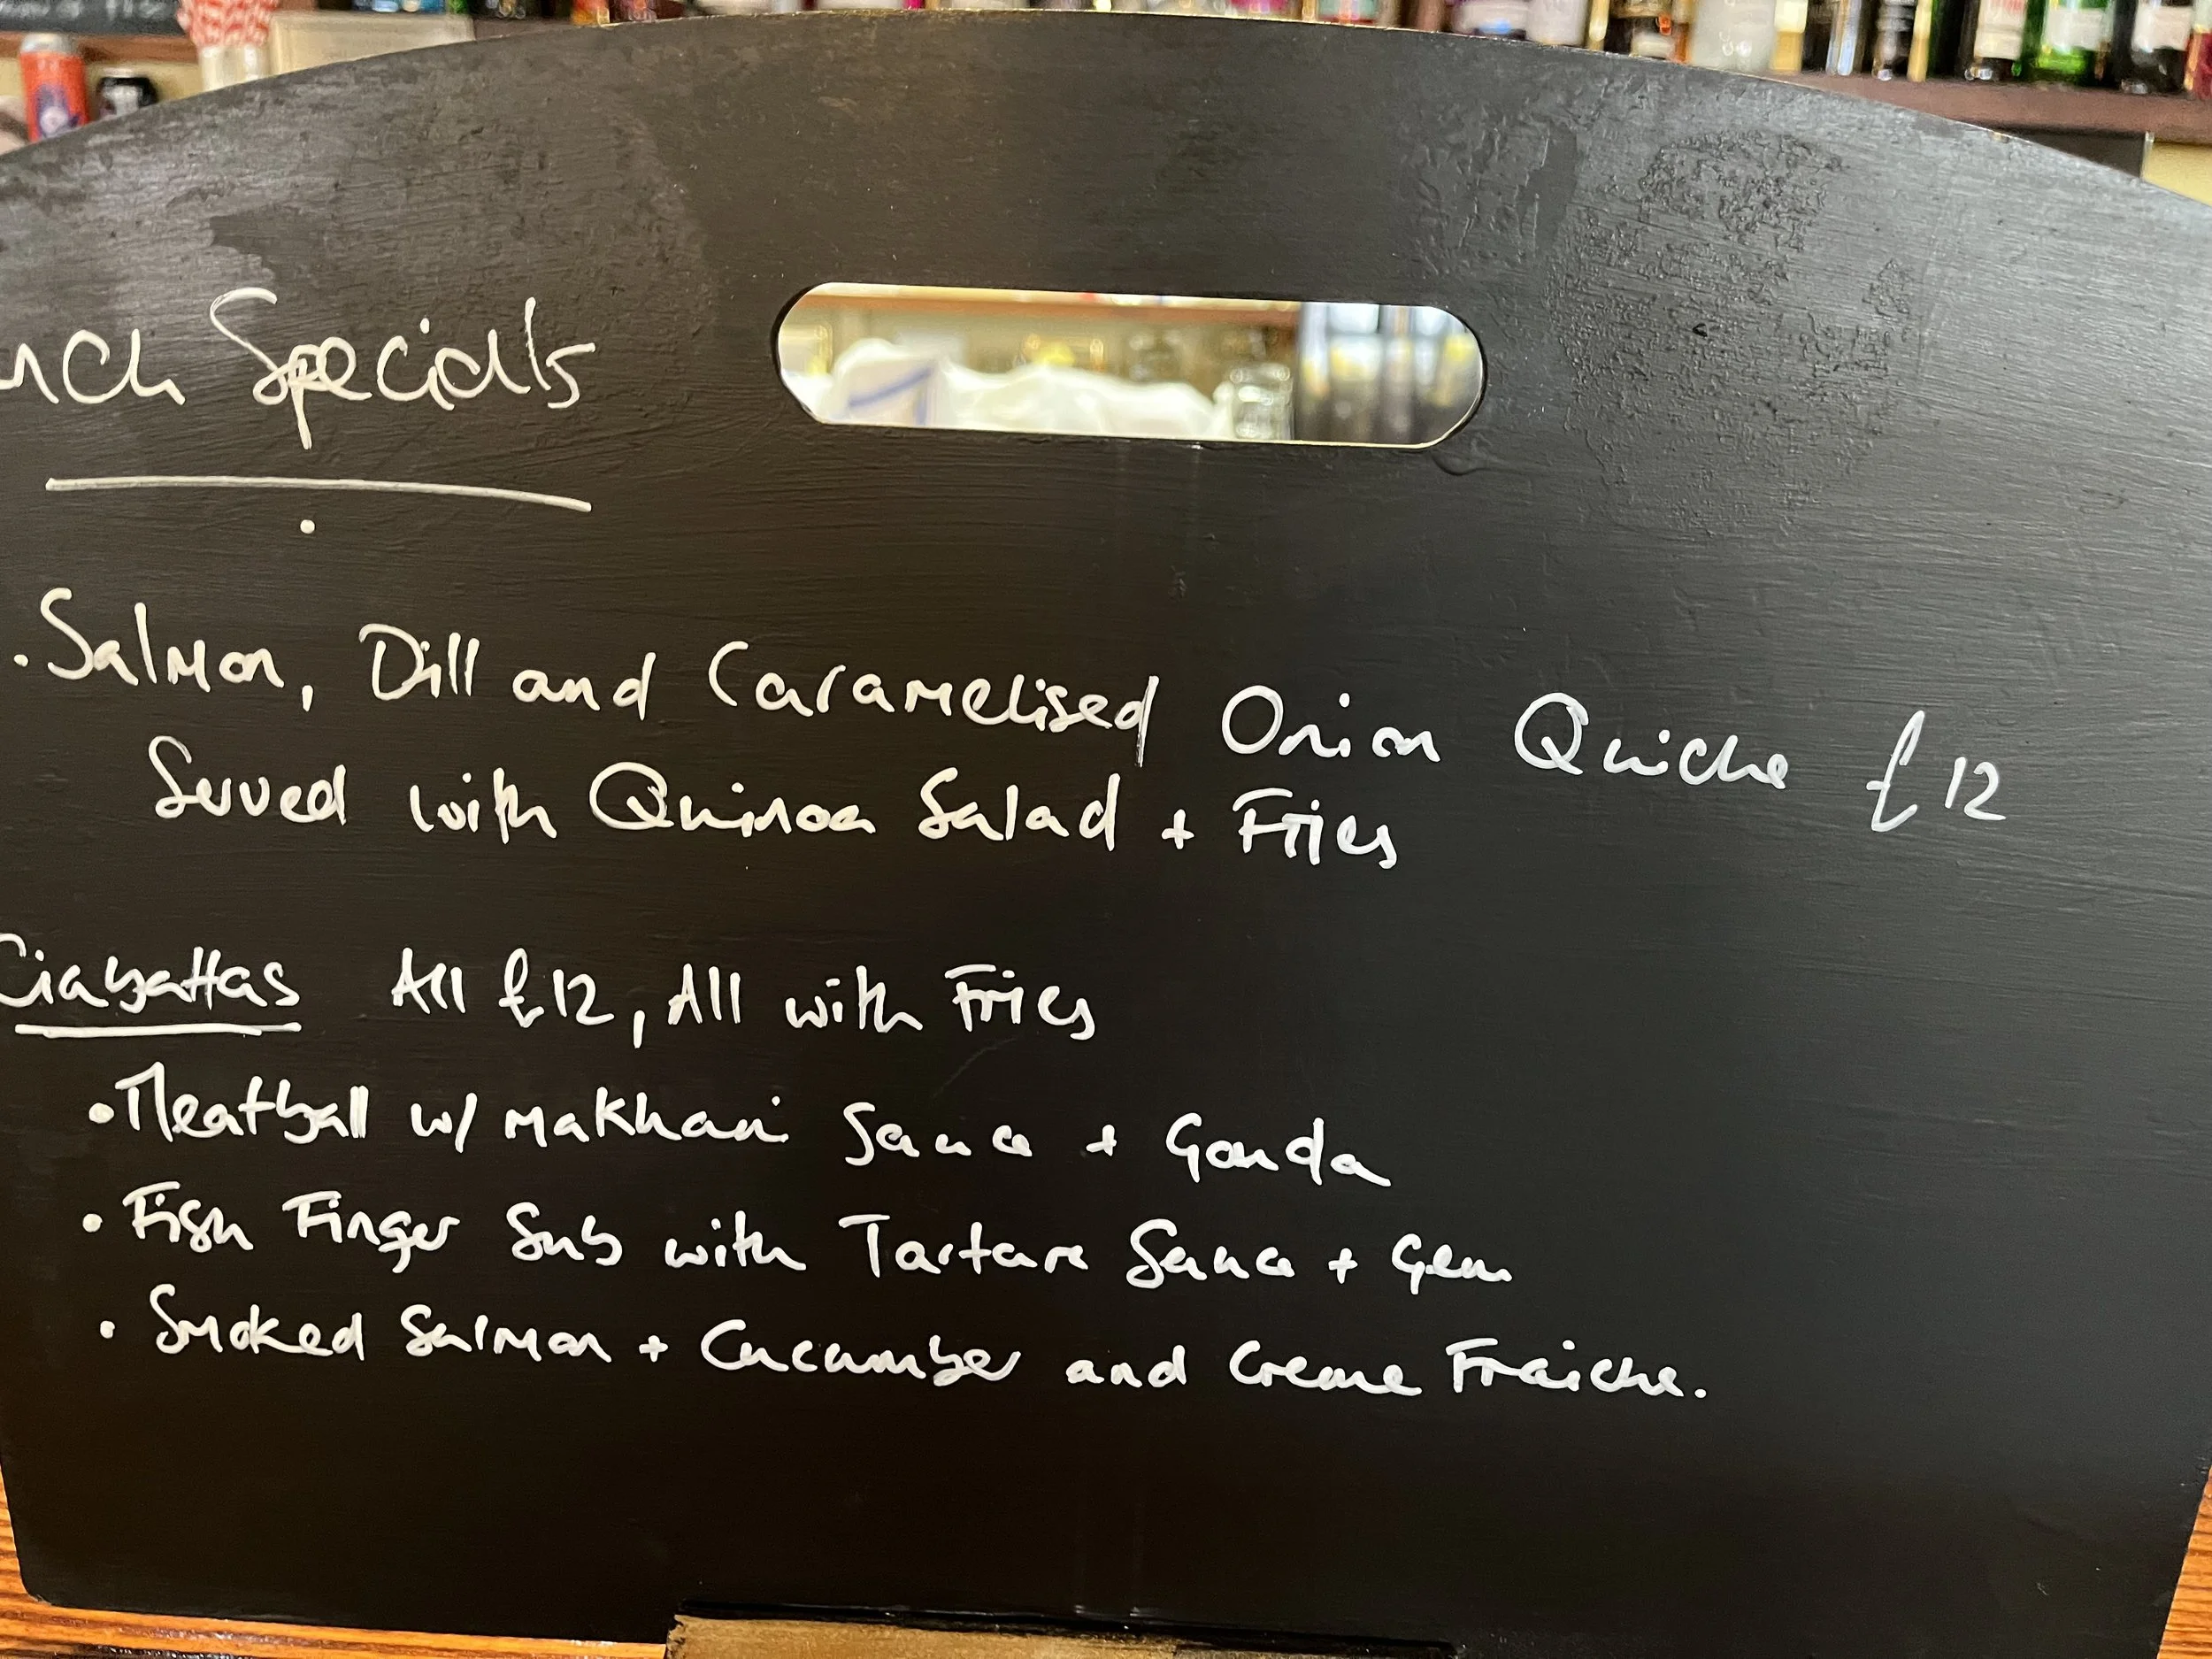 nch Specials
. Salmon, Dill and Caramelised Onion Quiche £12
Served with Quinoa Salad + Fries
Ciabattas All £12, All with Fries
• Meatball w/ Makhani Sauce + Gouda
• Fish Finger Sub with Tartare Sauce + Gem
• Smoked Salmon + Cucumber and Creme Fraiche.